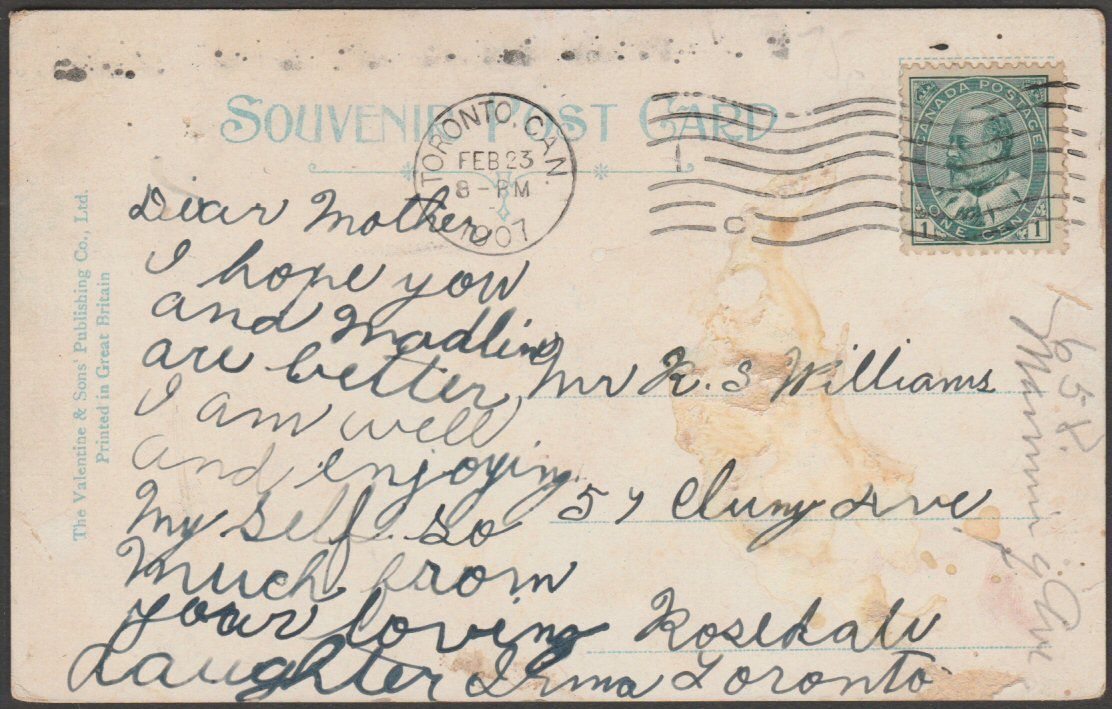 SOUVENIR POST CARD
TORONTO, CAN.
FEB 23
8 - PM
1907
C
CANADA POSTAGE
1 ONE CENT 1
The Valentine & Sons' Publishing Co., Ltd.
Printed in Great Britain
Dear Mother
I hope you
and Madline
are better
I am well
and enjoying
My self so
much from
your loving
daughter Irma
Mr R. S Williams
57 Cluny Ave
Rosedale
Toronto
658
Manning Ave